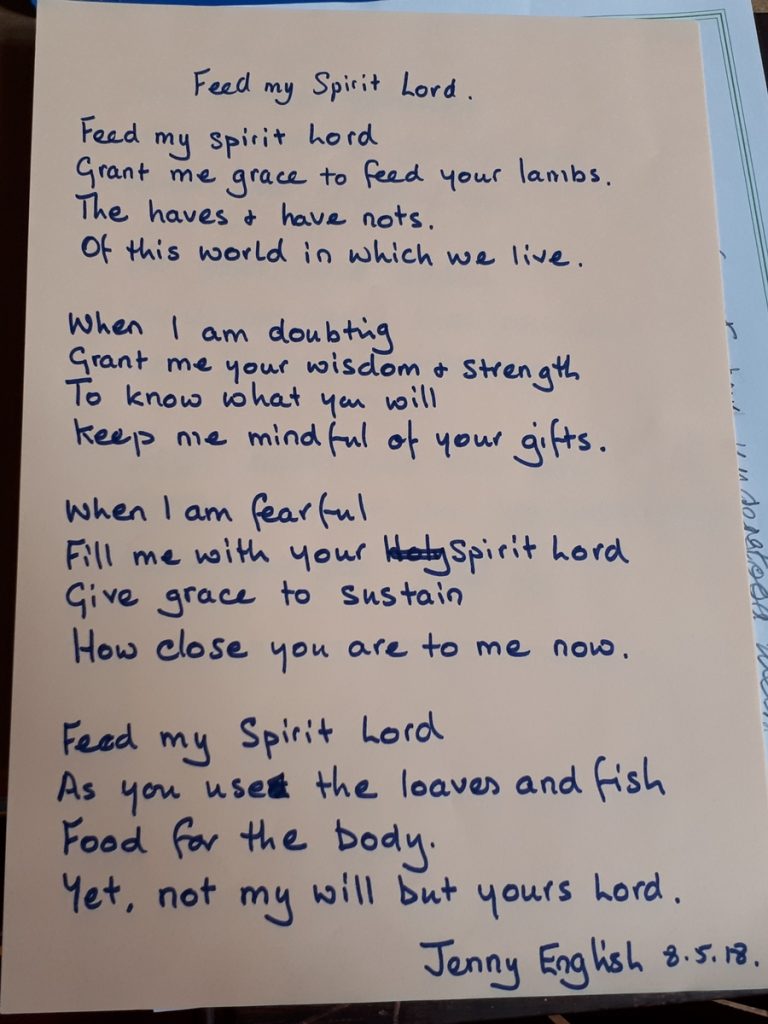 Feed my Spirit Lord.
Feed my spirit Lord
Grant me grace to feed your lambs.
The haves & have nots.
Of this world in which we live.
When I am doubting
Grant me your wisdom & strength
To know what you will
Keep me mindful of your gifts.
When I am fearful
Fill me with your Holy Spirit Lord
Give grace to sustain
How close you are to me now.
Feed my Spirit Lord
As you use the loaves and fish
Food for the body.
Yet, not my will but yours Lord.
Jenny English 8.5.18.